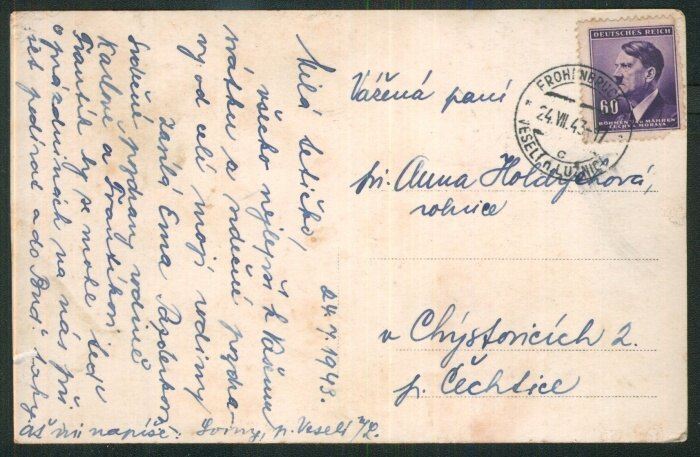 Milá tetičko,
všecko nejlepší k Vašemu
svátku a srdečné pozdra-
vy od celé mojí rodiny
Ema
Srdečné pozdravy rodině
Karlově a Frantíkovi
Frantík by se mohl tedy
o prázdninách na nás při-
jet podívat a do Bud.
ať mi napíše. p. Veselí n/L.
24. 7. 1943.
DEUTSCHES REICH
60
BÖHMEN UND MÄHREN
ČECHY A MORAVA
FROHENBRUCK
24. VII. 43-17
c
VESELÍ n. LUŽNICÍ
Vážená paní
pí. Anna Holdychová,
rolnice
v Chýstovicích 2.
p. Čechtice